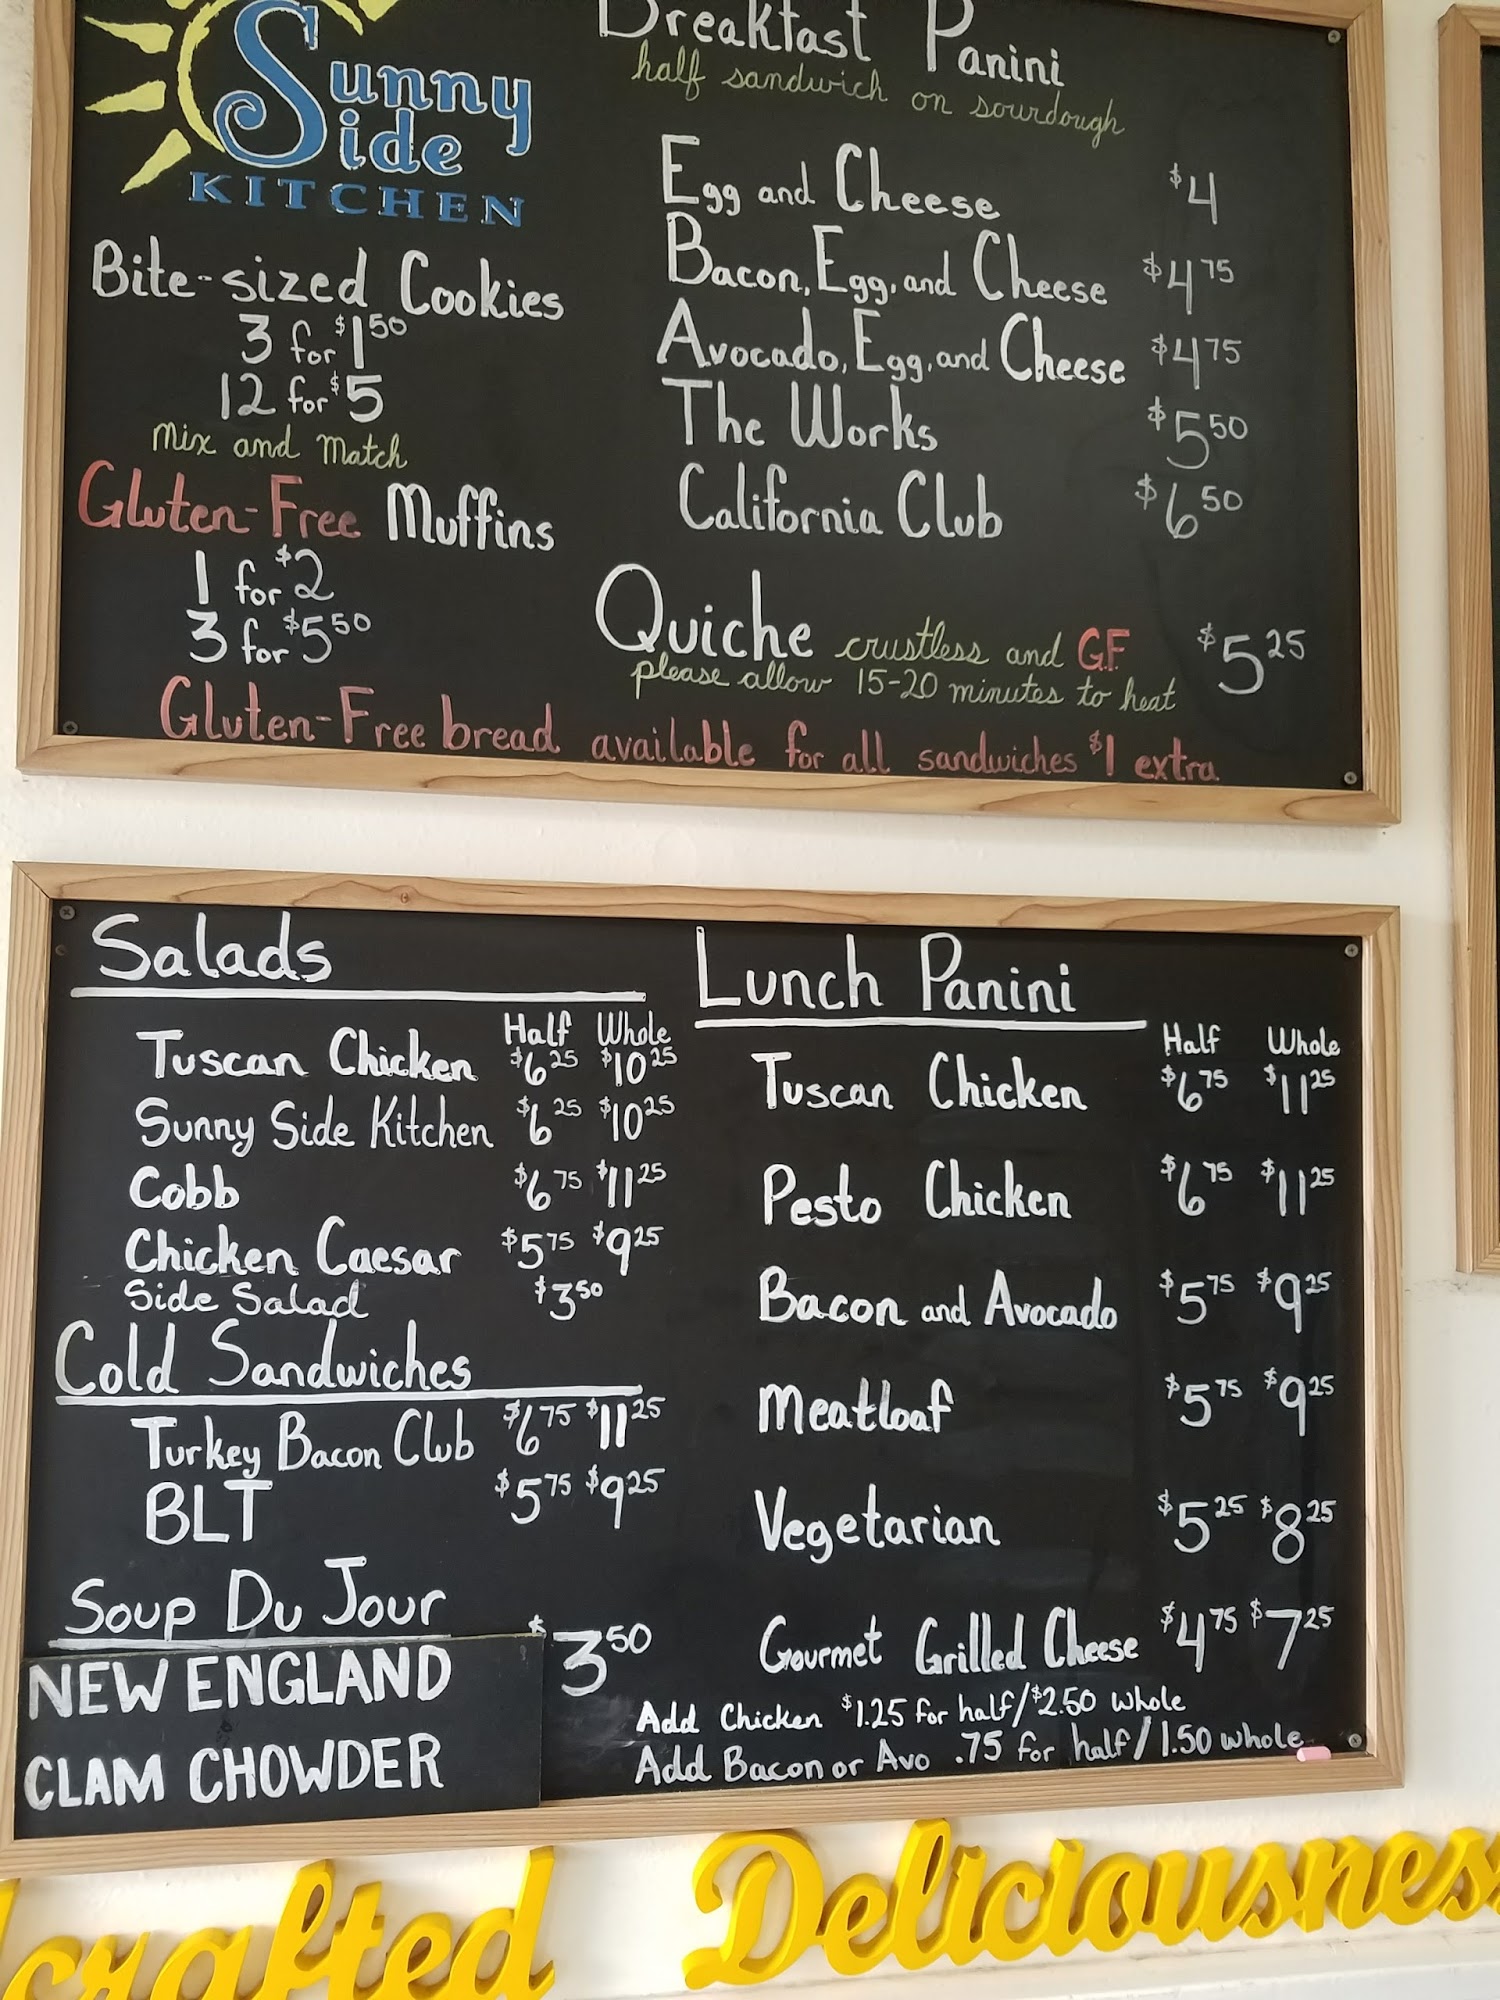 Sunny
Side
KITCHEN
Bite-sized Cookies
3 for $1 50
12 for $5
mix and match
Gluten-Free Muffins
1 for $2
3 for $5 50
Breakfast Panini
half sandwich on sourdough
Egg and Cheese $4
Bacon, Egg, and Cheese $4 75
Avocado, Egg, and Cheese $4 75
The Works $5 50
California Club $6 50
Quiche crustless and GF $5 25
please allow 15-20 minutes to heat
Gluten-Free bread available for all sandwiches $1 extra
Salads
Half Whole
Tuscan Chicken $6 25 $10 25
Sunny Side Kitchen $6 25 $10 25
Cobb $6 75 $11 25
Chicken Caesar $5 75 $9 25
Side Salad $3 50
Cold Sandwiches
Turkey Bacon Club $6 75 $11 25
BLT $5 75 $9 25
Soup Du Jour $3 50
NEW ENGLAND
CLAM CHOWDER
Lunch Panini
Half Whole
Tuscan Chicken $6 75 $11 25
Pesto Chicken $6 75 $11 25
Bacon and Avocado $5 75 $9 25
Meatloaf $5 75 $9 25
Vegetarian $5 25 $8 25
Gourmet Grilled Cheese $4 75 $7 25
Add Chicken $1.25 for half/$2.50 whole
Add Bacon or Avo .75 for half/1.50 whole
crafted Deliciousness